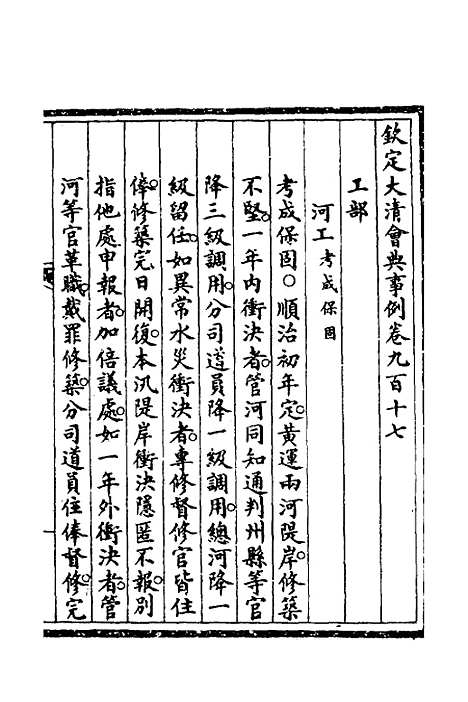 欽定大清會典事例卷九百十七
工部
河工考成保固
考成保固○順治初年定。黃運兩河隄岸。修築
不堅。一年內衝決者。管河同知通判州縣等官
降三級調用。分司道員降一級調用。總河降一
級留任。如異常水災衝決者。專修督修官皆住
俸。修築完日開復。本汛隄岸衝決隱匿不報。別
指他處申報者。加倍議處。如一年外衝決者。管
河等官革職。戴罪修築。分司道員住俸督修。完